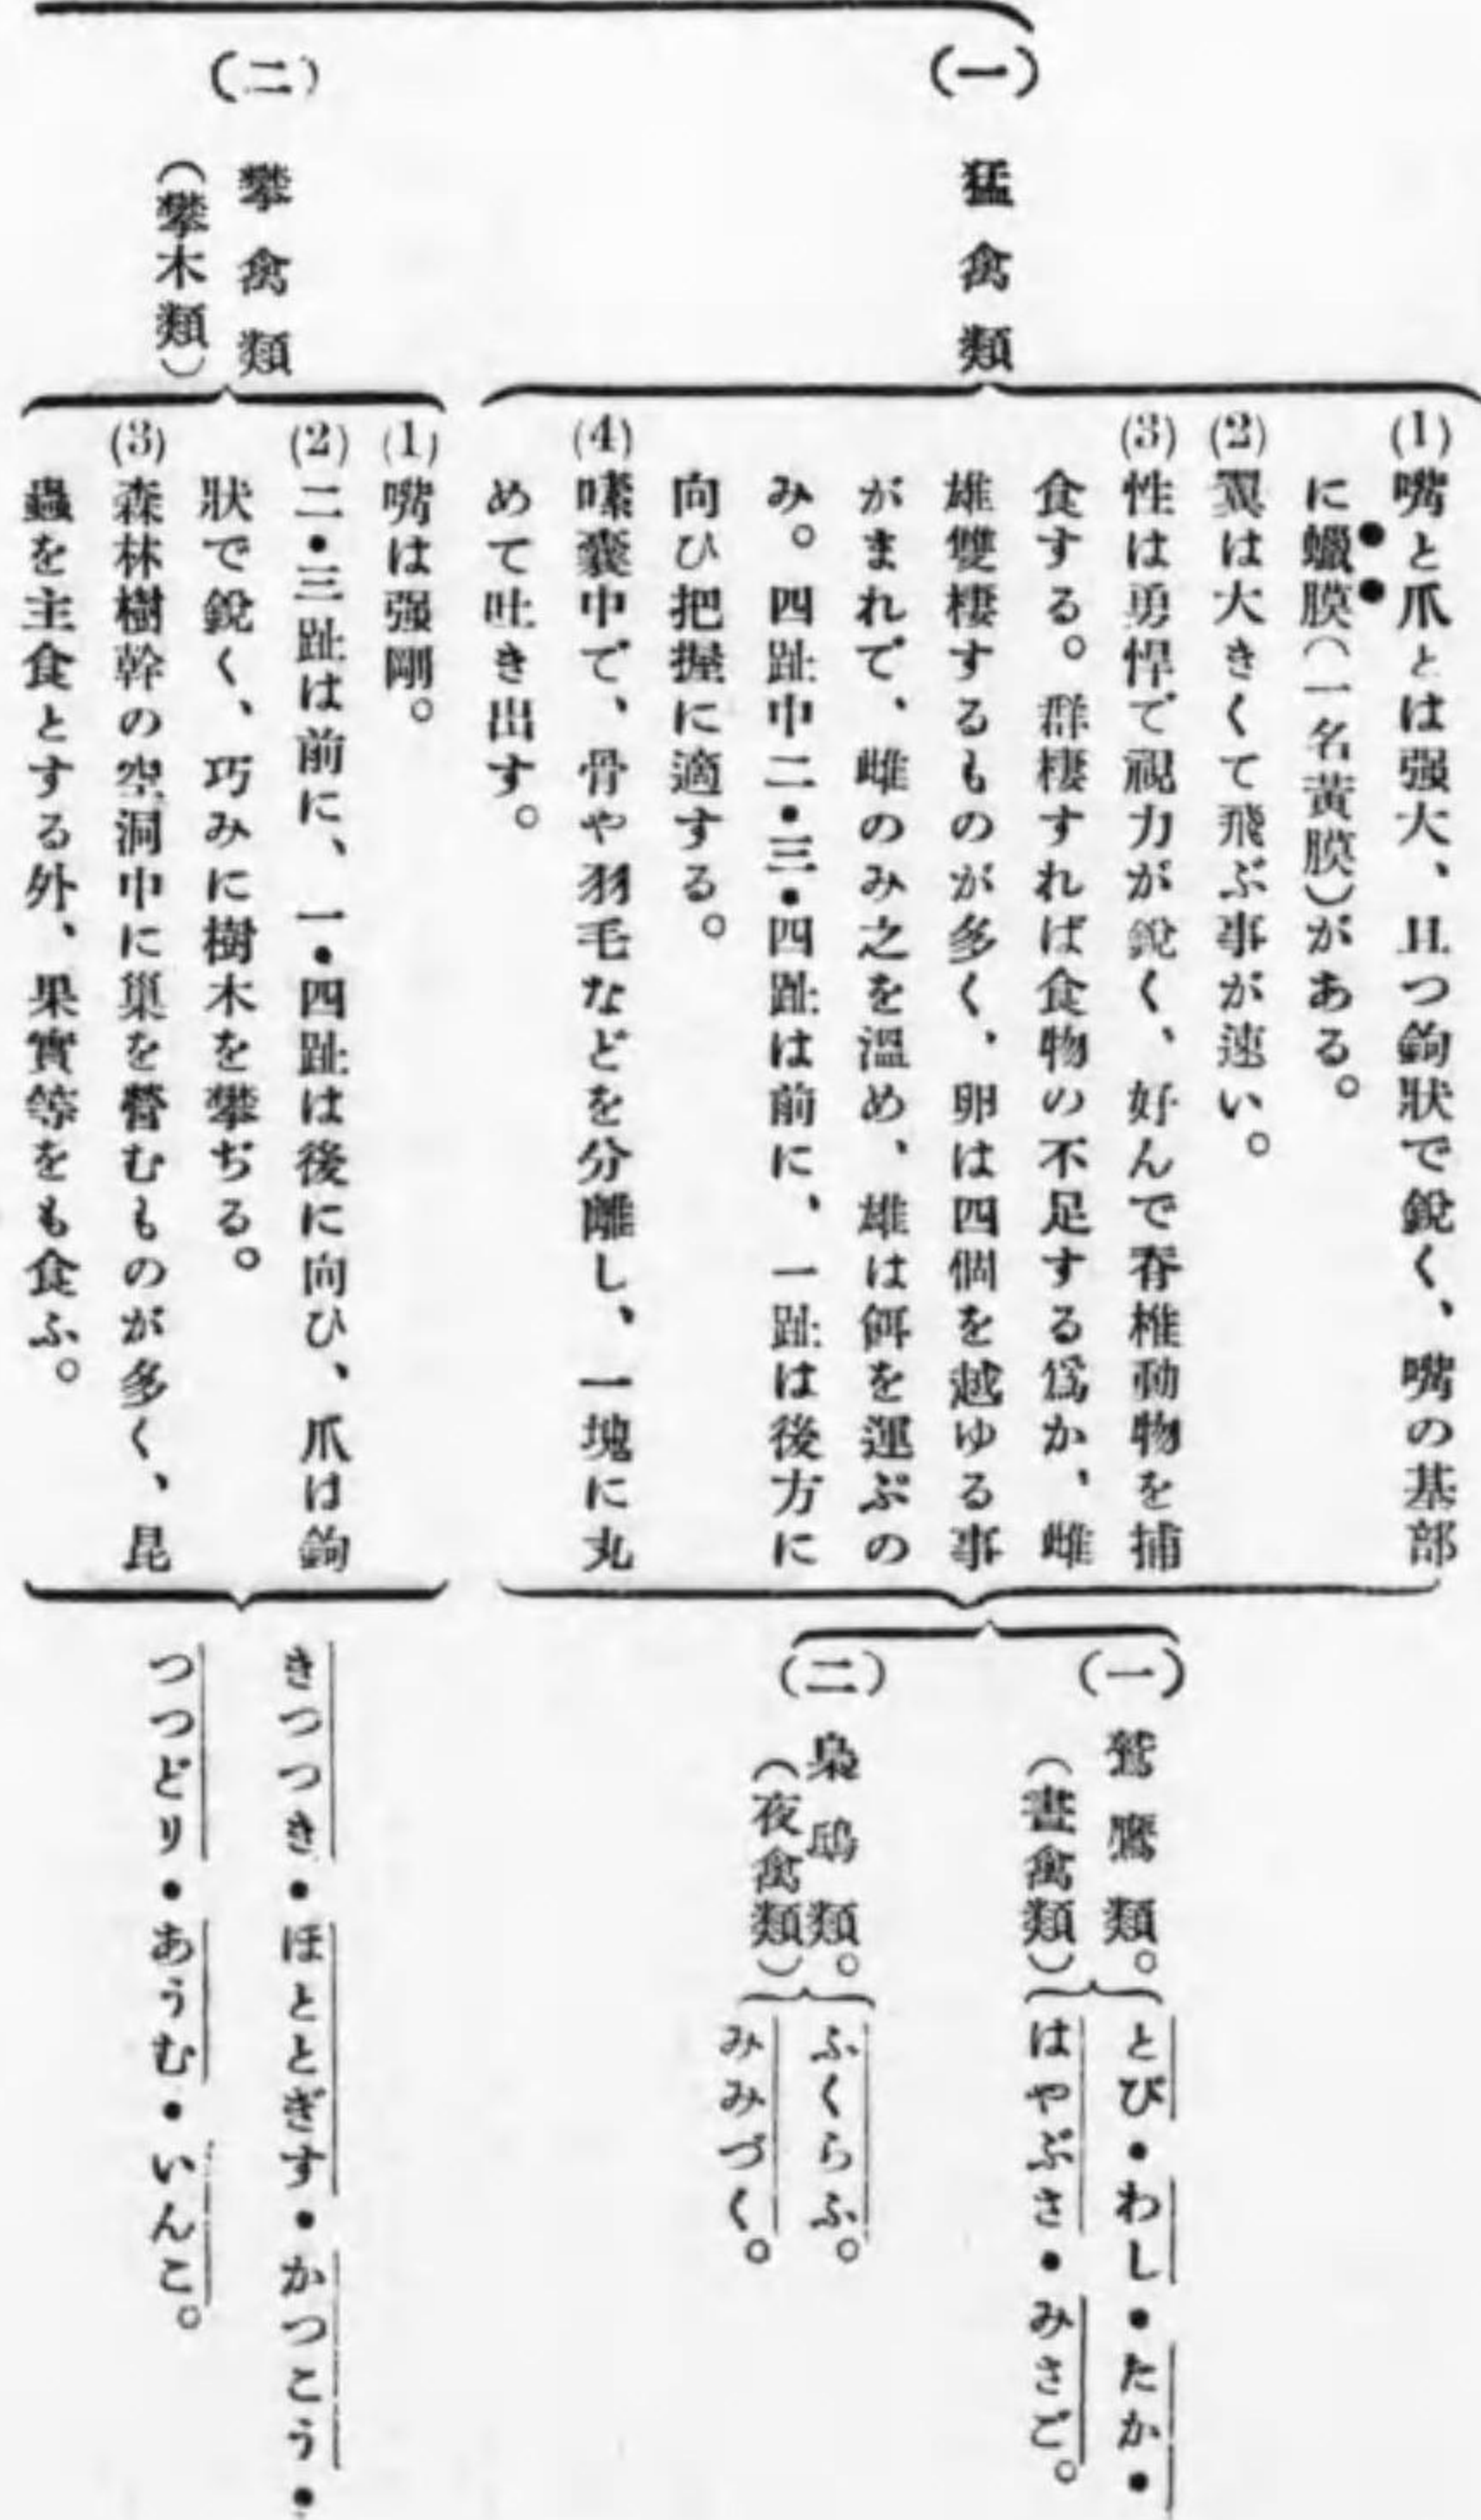 （一）　猛禽類
(1)嘴と爪とは强大、且つ鉤狀で銳く、嘴の基部
に蠟膜（一名黃膜）がある。
(2)翼は大きくて飛ぶ事が速い。
(3)性は勇悍で視力が銳く、好んで脊椎動物を捕
食する。群棲すれば食物の不足する爲か、雌
雄雙棲するものが多く、卵は四個を越ゆる事
がまれで、雌のみ之を溫め、雄は餌を運ぶの
み。四趾中二・三・四趾は前に、一趾は後方に
向ひ把握に適する。
(4)嗉囊中で、骨や羽毛などを分離し、一塊に丸
めて吐き出す。
（一）鷲鷹類。
（晝禽類）
とび・わし・たか・
はやぶさ・みさご。
（二）梟鴟類。
（夜禽類）
ふくらふ。
みみづく。
（二）　攀禽類
（攀木類）
(1)嘴は强剛。
(2)二・三趾は前に、一・四趾は後に向ひ、爪は鉤
狀で銳く、巧みに樹木を攀ぢる。
(3)森林樹幹の空洞中に巢を營むものが多く、昆
蟲を主食とする外、果實等をも食ふ。
きつつき・ほととぎす・かつこう・
つつどり・あうむ・いんこ。